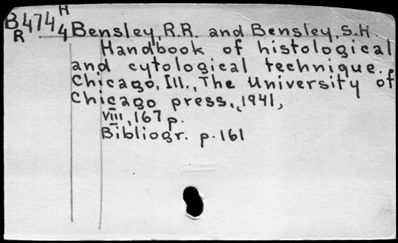 H
B4744 Bensley, R.R. and Bensley, S.H
R Handbook of histological
and cytological technique.
Chicago, Ill., The University of
Chicago press, 1941,
viii, 167 p.
Bibliogr. p.161